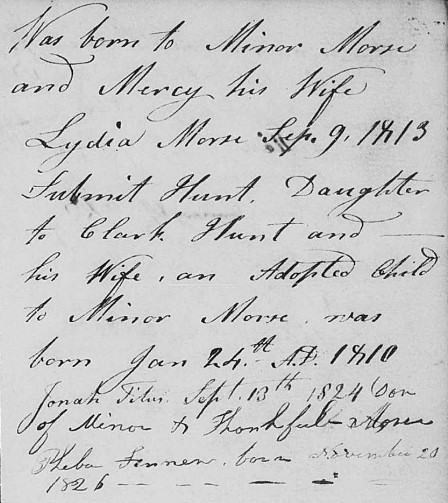 Was born to Minor Morse
and Mercy his Wife
Lydia Morse Sep. 9, 1813
Submit Hunt, Daughter
to Clark Hunt and —
his Wife, an Adopted Child
to Minor Morse, was
born Jan 24.th A.D. 1810
Jonah Titus. Sept. 13th 1824 Son
of Minor & Thankful Morse
Pheba Fenner, born November 20
1826 — — — — —